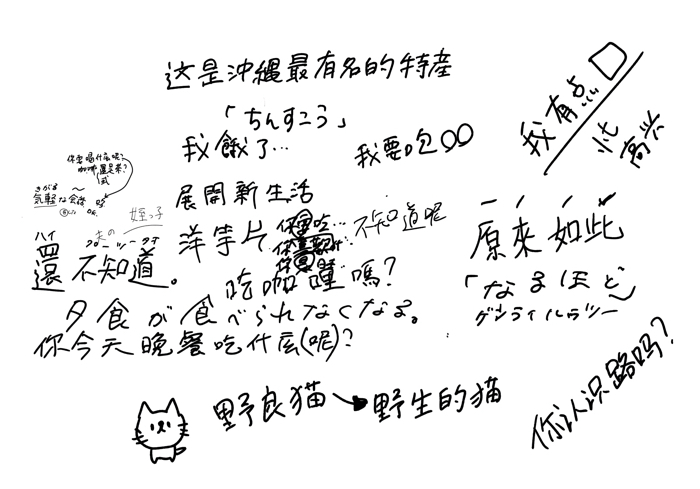 这是沖縄最有名的特産
「ちんすこう」
我餓了…
我要吃○○
我有点□
忙
高兴
你要喝什麼呢?
展開新生活
気軽な会話
姪っ子
洋芋片
不知道呢
ハイ
還不知道。
吃咖哩嗎?
原來如此
「なるほど」
夕食が食べられなくなる。
你今天晚餐吃什么(呢)?
野良猫→野生的猫
你认识路吗?